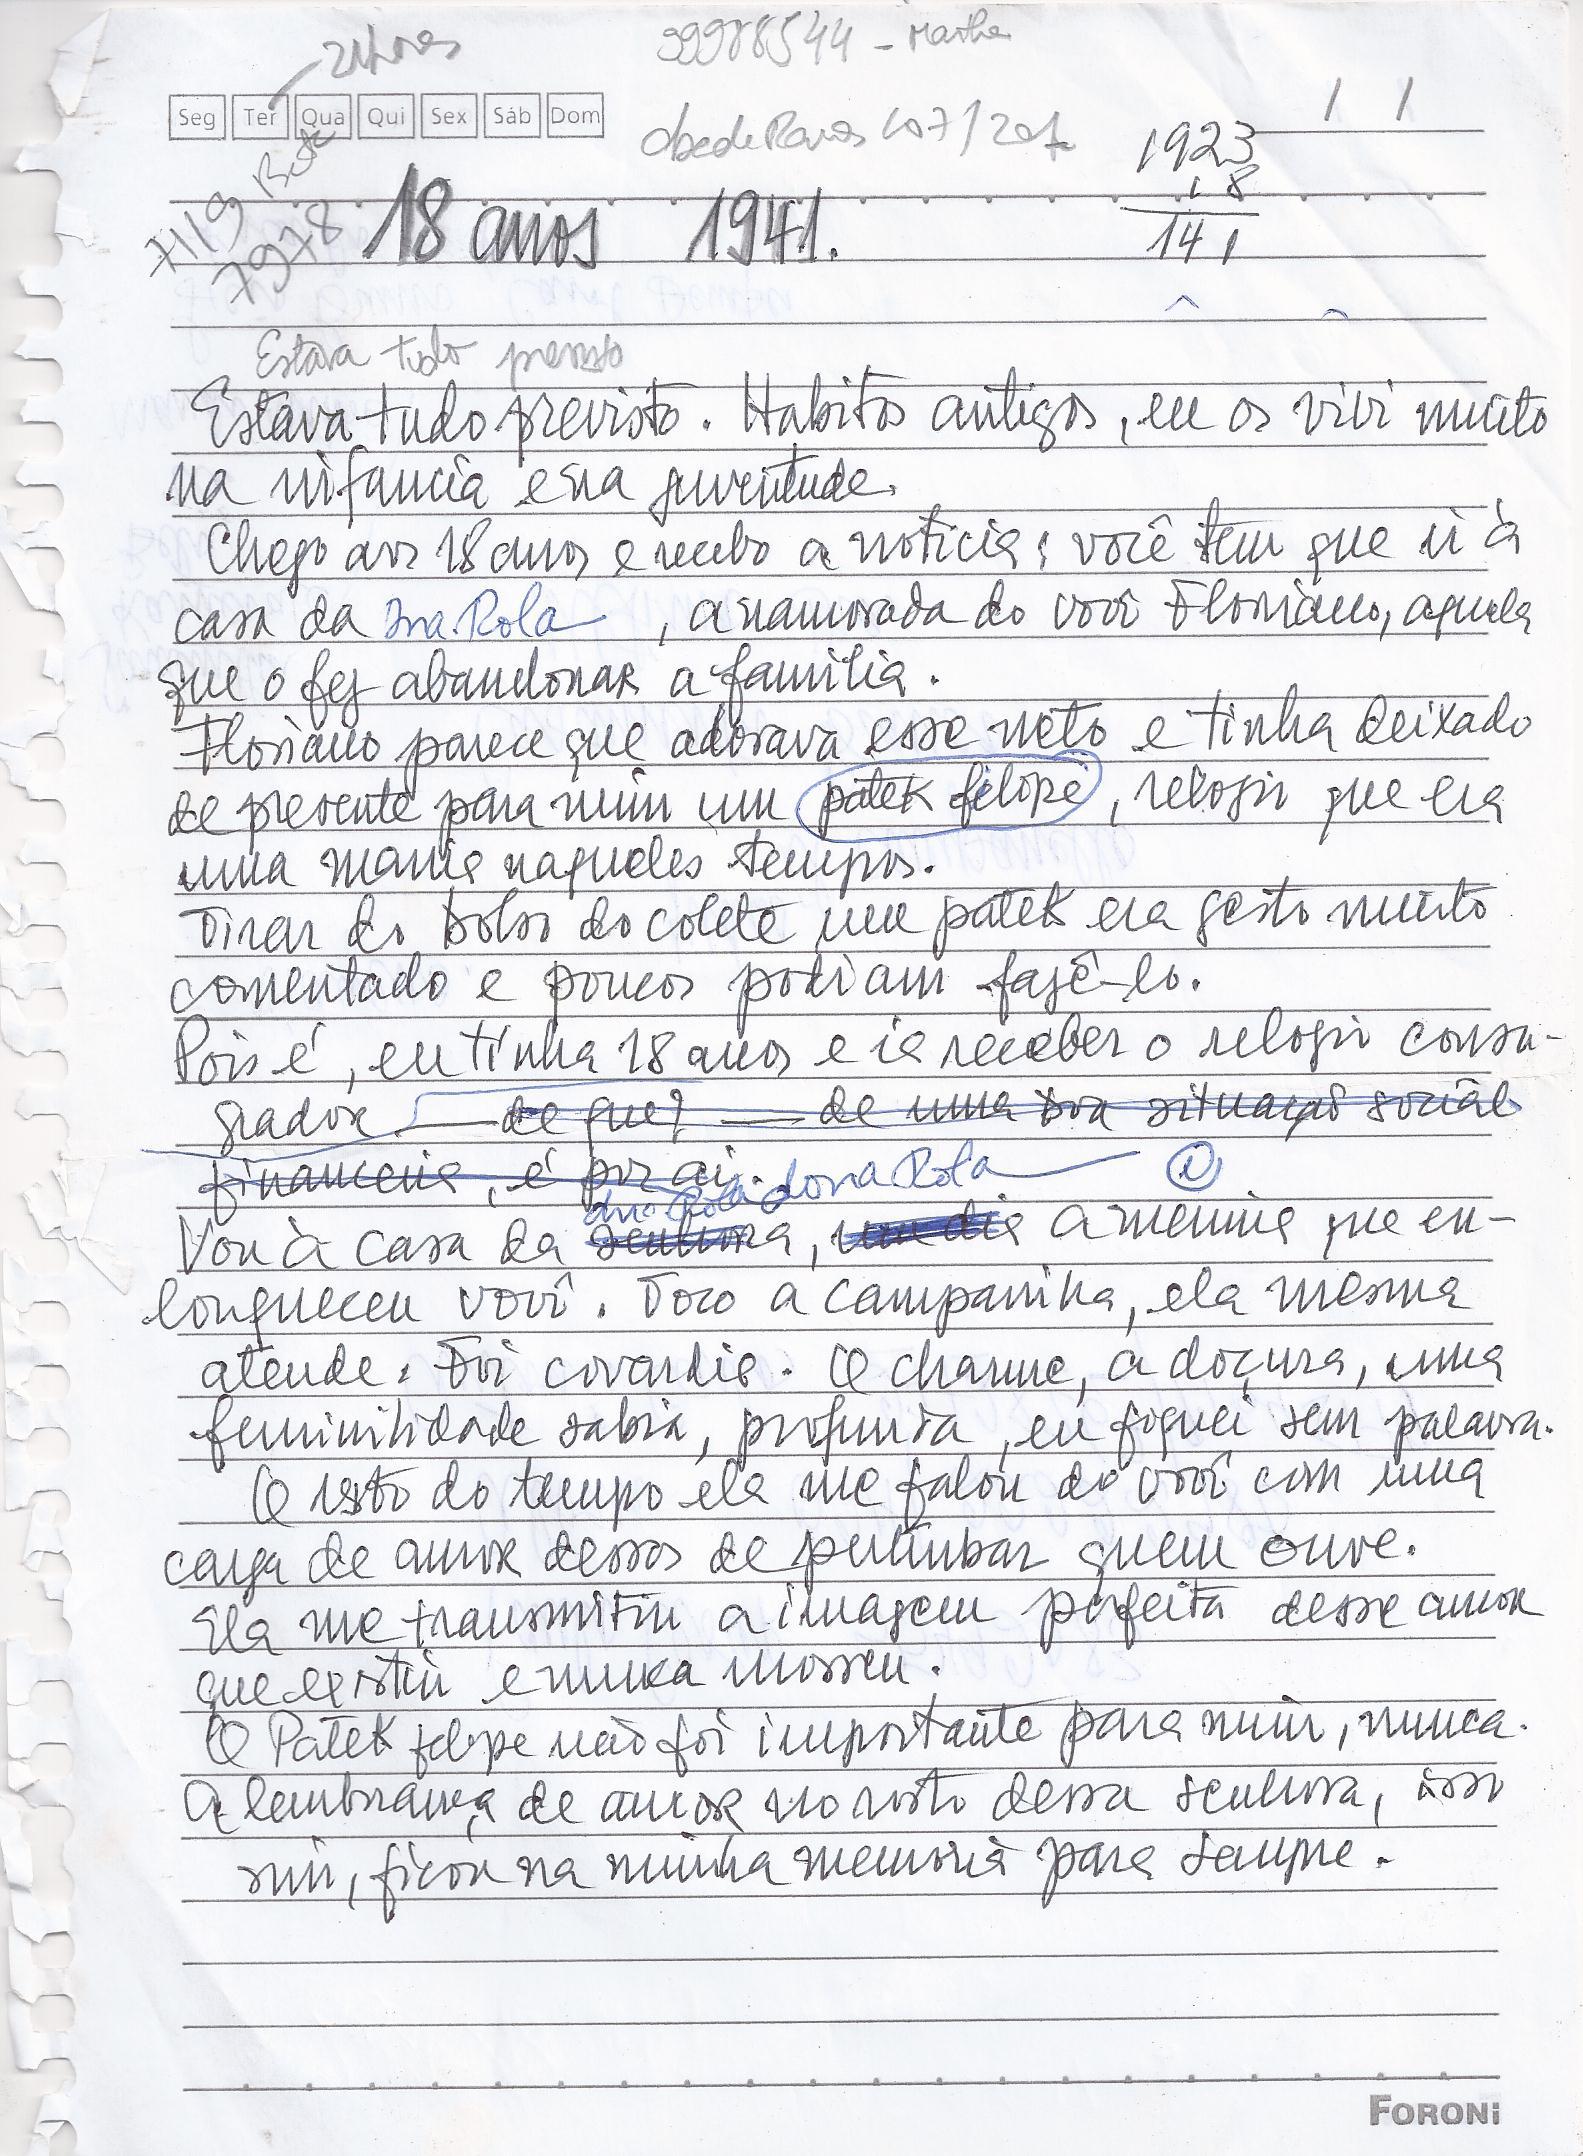 21 horas 99988544 - Martha
Seg Ter Qua Qui Sex Sáb Dom
107/207
1923
18
141
7119
7978
18 anos 1941.
Estava tudo previsto
Estava tudo previsto. Habitos antigos, eu os vivi muito
na infancia e na juventude.
Chego aos 18 anos e recebo a noticia: você tem que ir à
casa da Dna. Rola, a namorada do vovô Floriano, aquela
que o fez abandonar a familia.
Floriano parece que adorava esse neto e tinha deixado
de presente para mim um patek filipe, relogio que era
uma mania naqueles tempos.
Tirar do bolso do colete um patek era gesto muito
comentado e poucos podiam fazê-lo.
Pois é, eu tinha 18 anos e ia receber o relogio consa-
grador — de que? — de uma boa situação social
financeira, é por ai.
dna. Rola dona Rola
Vou à casa da senhora, um dia a menina que en-
louqueceu vovô. Toco a campainha, ela mesma
atende. Foi covardia. O charme, a doçura, uma
feminilidade sabia, profunda, eu fiquei sem palavra.
O resto do tempo ela me falou do vovô com uma
carga de amor dessas de perturbar quem ouve.
Ela me transmitiu a imagem perfeita desse amor
que existiu e nunca morreu.
O Patek felipe não foi importante para mim, nunca.
A lembrança de amor no rosto dessa senhora, isso
sim, ficou na minha memoria para sempre.
FORONI